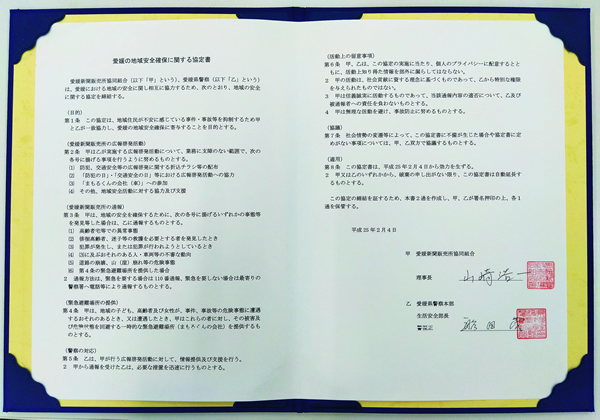 愛媛の地域安全確保に関する協定書
愛媛新聞販売所協同組合（以下「甲」という）、愛媛県警察（以下「乙」という）
は、愛媛における地域の安全に関し相互に協力するため、次のとおり、地域の安全
に関する協定を締結する。
（目的）
第１条　この協定は、地域住民が不安に感じている事件・事故等を抑制するため甲
と乙が一致協力し、愛媛の地域安全確保に寄与することを目的とする。
（愛媛新聞販売所の広報啓発活動）
第２条　甲は乙が実施する広報啓発活動について、業務に支障のない範囲で、次の
各号に掲げる事項を行うように努めるものとする。
(1)　防犯、交通安全等の広報啓発に関する折込チラシ等の配布
(2)　「防犯の日」・「交通安全の日」等における広報啓発活動への協力
(3)　「まもるくんの会社（車）」への参加
(4)　その他、地域安全活動に対する協力及び支援
（愛媛新聞販売所の通報）
第３条　甲は、地域の安全を確保するために、次の各号に掲げるいずれかの事態等
を発見等した場合は、乙に通報するものとする。
(1)　高齢者宅等での異常事態
(2)　徘徊高齢者、迷子等の救護を必要とする者を発見したとき
(3)　犯罪が発生し、または犯罪が行われようとしているとき
(4)　(3)に及ぶおそれのある人・車両等の不審な動向
(5)　道路の崩壊、山（崖）崩れ等の危険事態
(6)　第４条の緊急避難場所を提供した場合
２　通報方法は、緊急を要する場合は110番通報、緊急を要しない場合は最寄りの
警察署へ電話等により通報するものとする。
（緊急避難場所の提供）
第４条　甲は、地域の子ども、高齢者及び女性が、事件、事故等の危険事態に遭遇
するおそれのあるとき、又は遭遇したとき、甲はこれらの者に対し、その被害及
び危険状態を回避する一時的な緊急避難場所（まもるくんの会社）を提供するもの
とする。
（警察の対応）
第５条　乙は、甲が行う広報啓発活動に対して、情報提供及び支援を行う。
２　甲から通報を受けた乙は、必要な措置を迅速に行うものとする。
（活動上の留意事項）
第６条　甲、乙は、この協定の実施に当たり、個人のプライバシーに配意するとと
もに、活動上知り得た情報を部外に漏らしてはならない。
２　甲の活動は、社会貢献に資する理念に基づくものであって、乙から特別な権限
を与えられたものではない。
３　甲は信義誠実に活動するものであって、当該通報内容の適否について、乙及び
被通報者への責任を負わないものとする。
４　甲は無理な活動を避け、事故防止に努めるものとする。
（協議）
第７条　社会情勢の変遷等によって、この協定書に不備が生じた場合や協定書に定
めがない事項については、甲、乙双方で協議するものとする。
（適用）
第８条　この協定書は、平成２５年２月４日から効力を生ずる。
２　甲又は乙のいずれかから、破棄の申し出がない限り、この協定書は自動延長す
るものとする。
この協定の締結を証するため、本書２通を作成し、甲、乙が署名押印の上、各１
通を保管する。
平成２５年２月４日
甲　愛媛新聞販売所協同組合
理事長　山﨑浩一
乙　愛媛県警察本部
生活安全部長